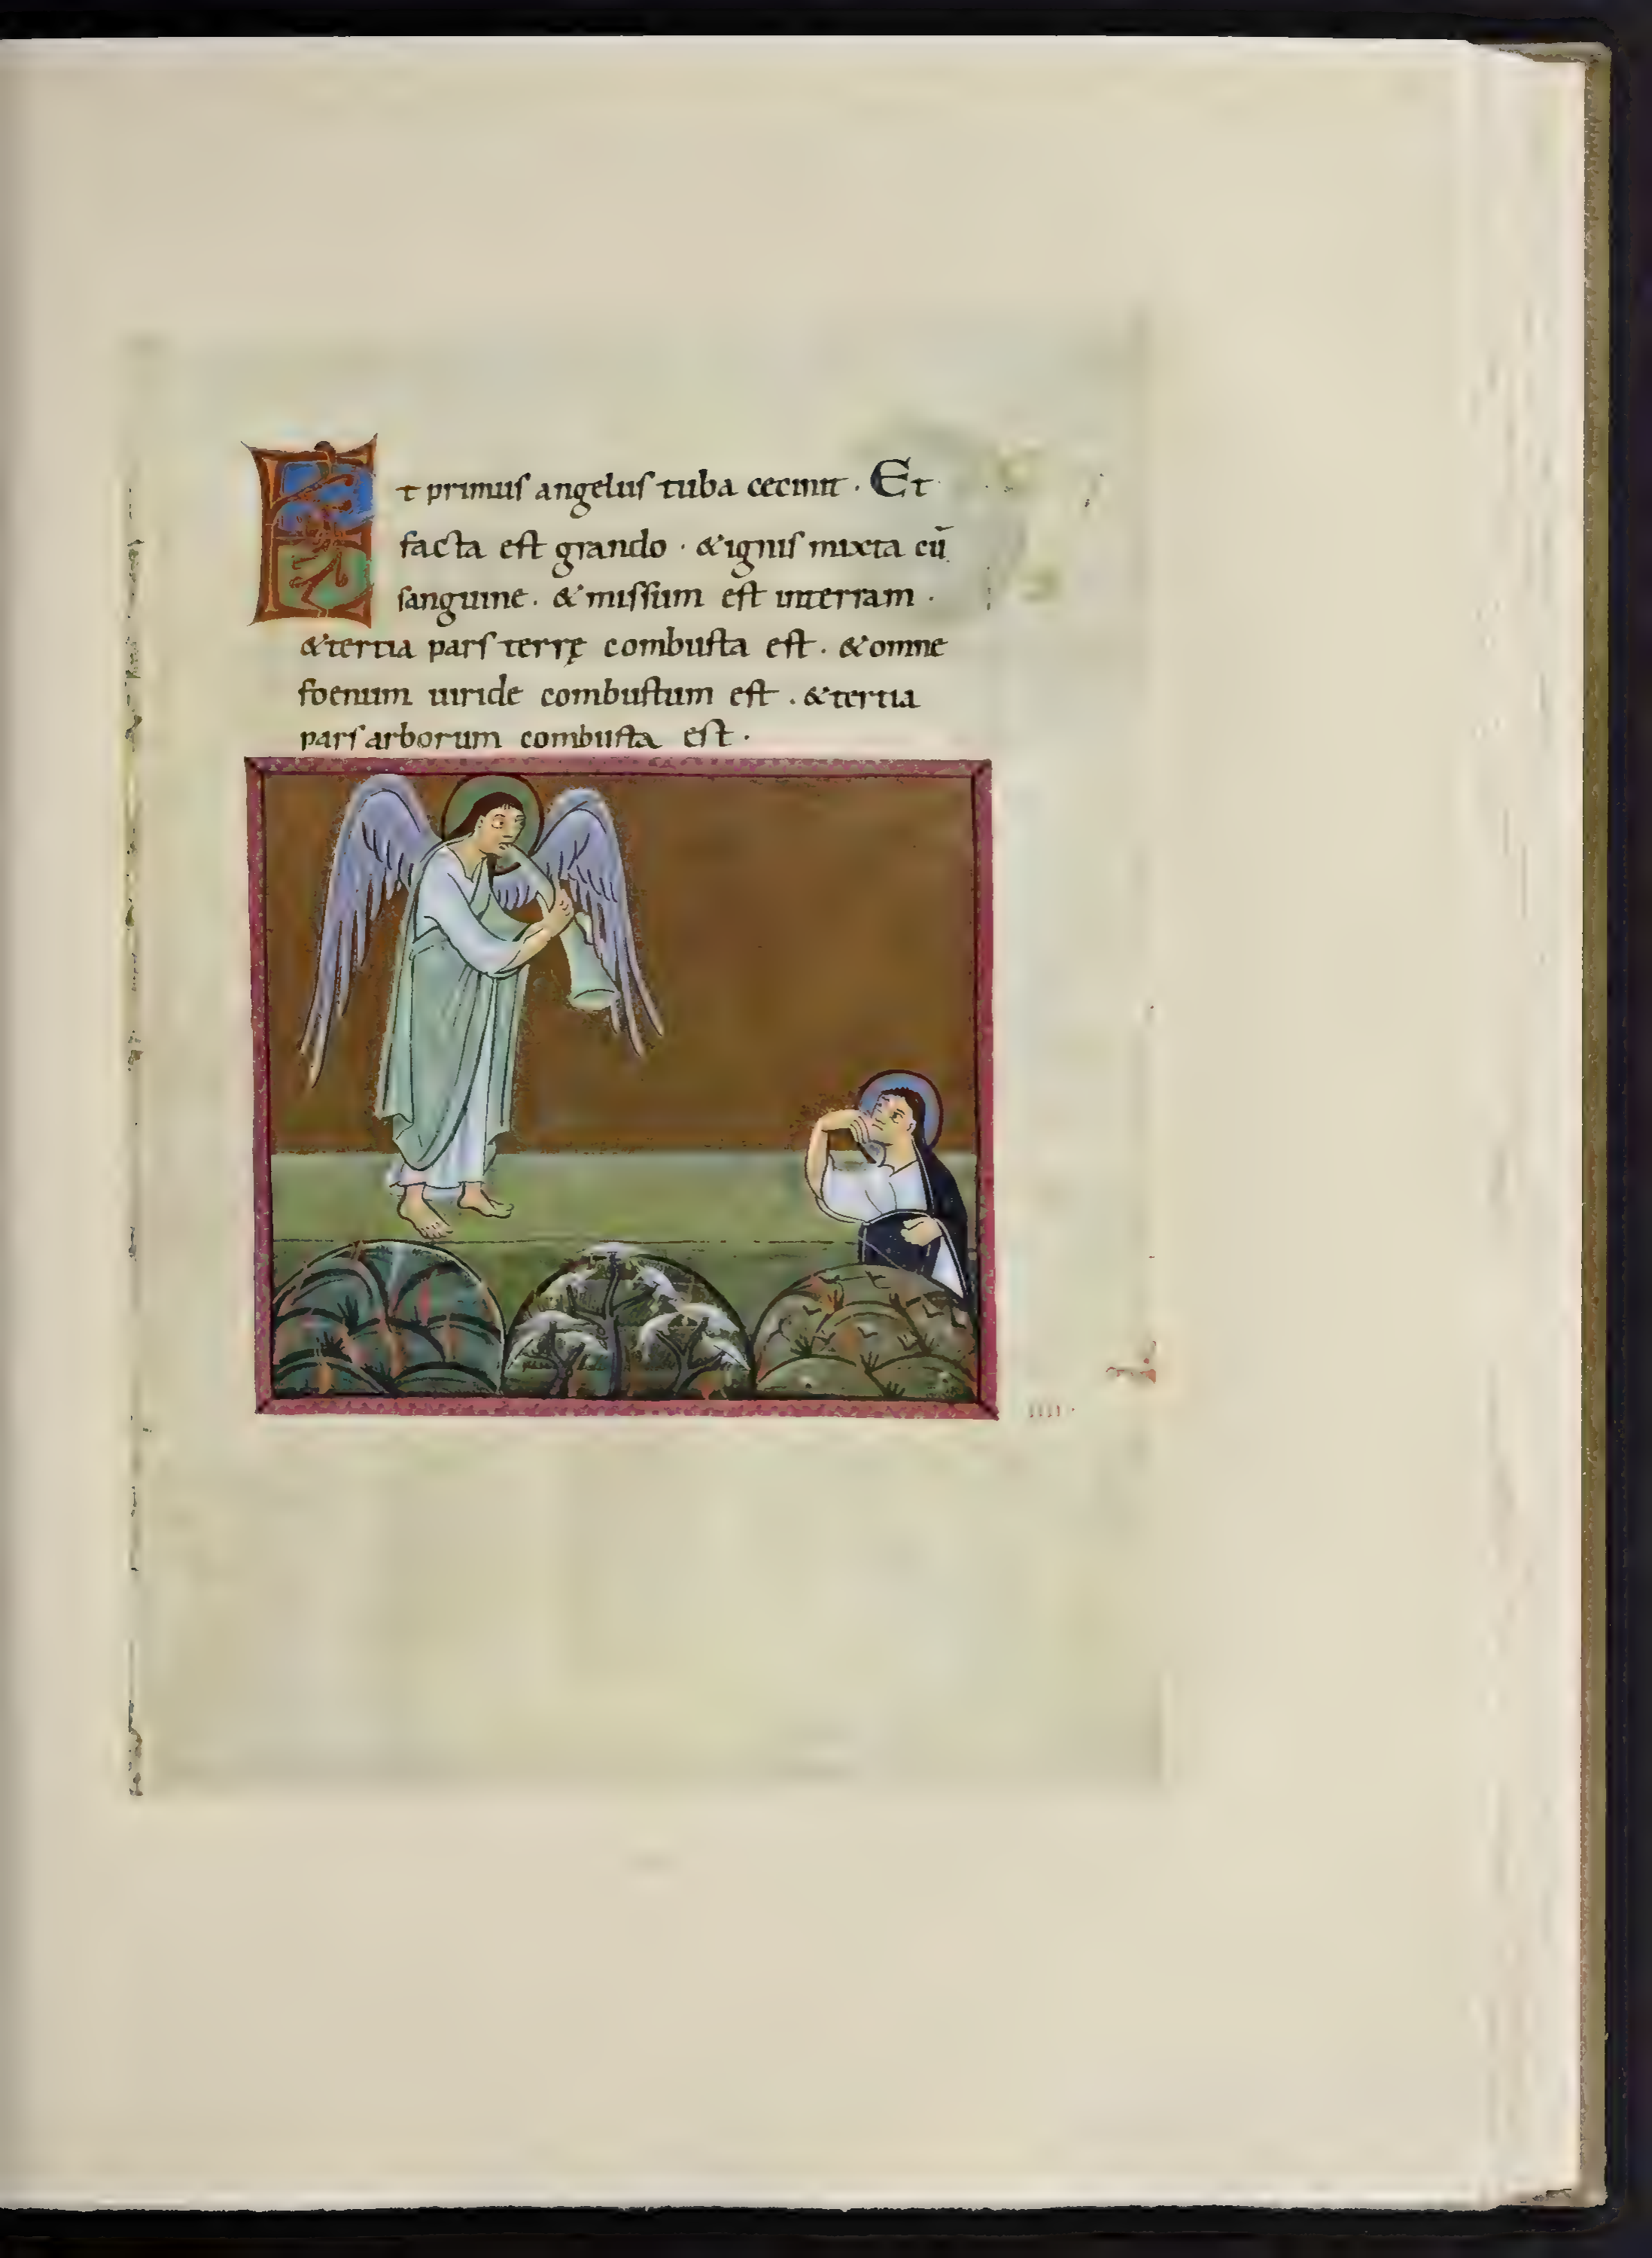 Et primus angelus tuba cecinit · Et
facta est grando · & ignis mixta cū
sanguine · & missum est interram ·
& tertia pars terrę combusta est · & omne
foenum uiride combustum est · & tertia
pars arborum combusta est ·
IIII·